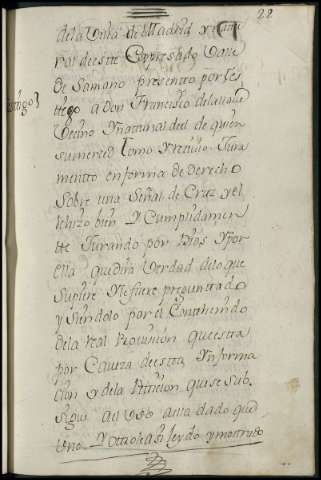 22
de la Villa de Madrid y
ral de este expresado Valle
de Samano presento por tes
tigo a Don Francisco de la
testigo
Vecino y natural del de quien
su merced tomo y recivio Jura
mento en forma de derecho
sobre una Señal de Cruz y el
lo hizo bien y Cumplidamen
te Jurando por Dios y por
ella que dira Verdad de lo que
supiere y le fuere preguntado
y siendolo por el Contthenido
de la real Provision que esta
por Caveza de esta Informa
cion y de la Peticion que se sub
sigue al uso a ella dado que
uno y otro le a sido leydo y mostrado